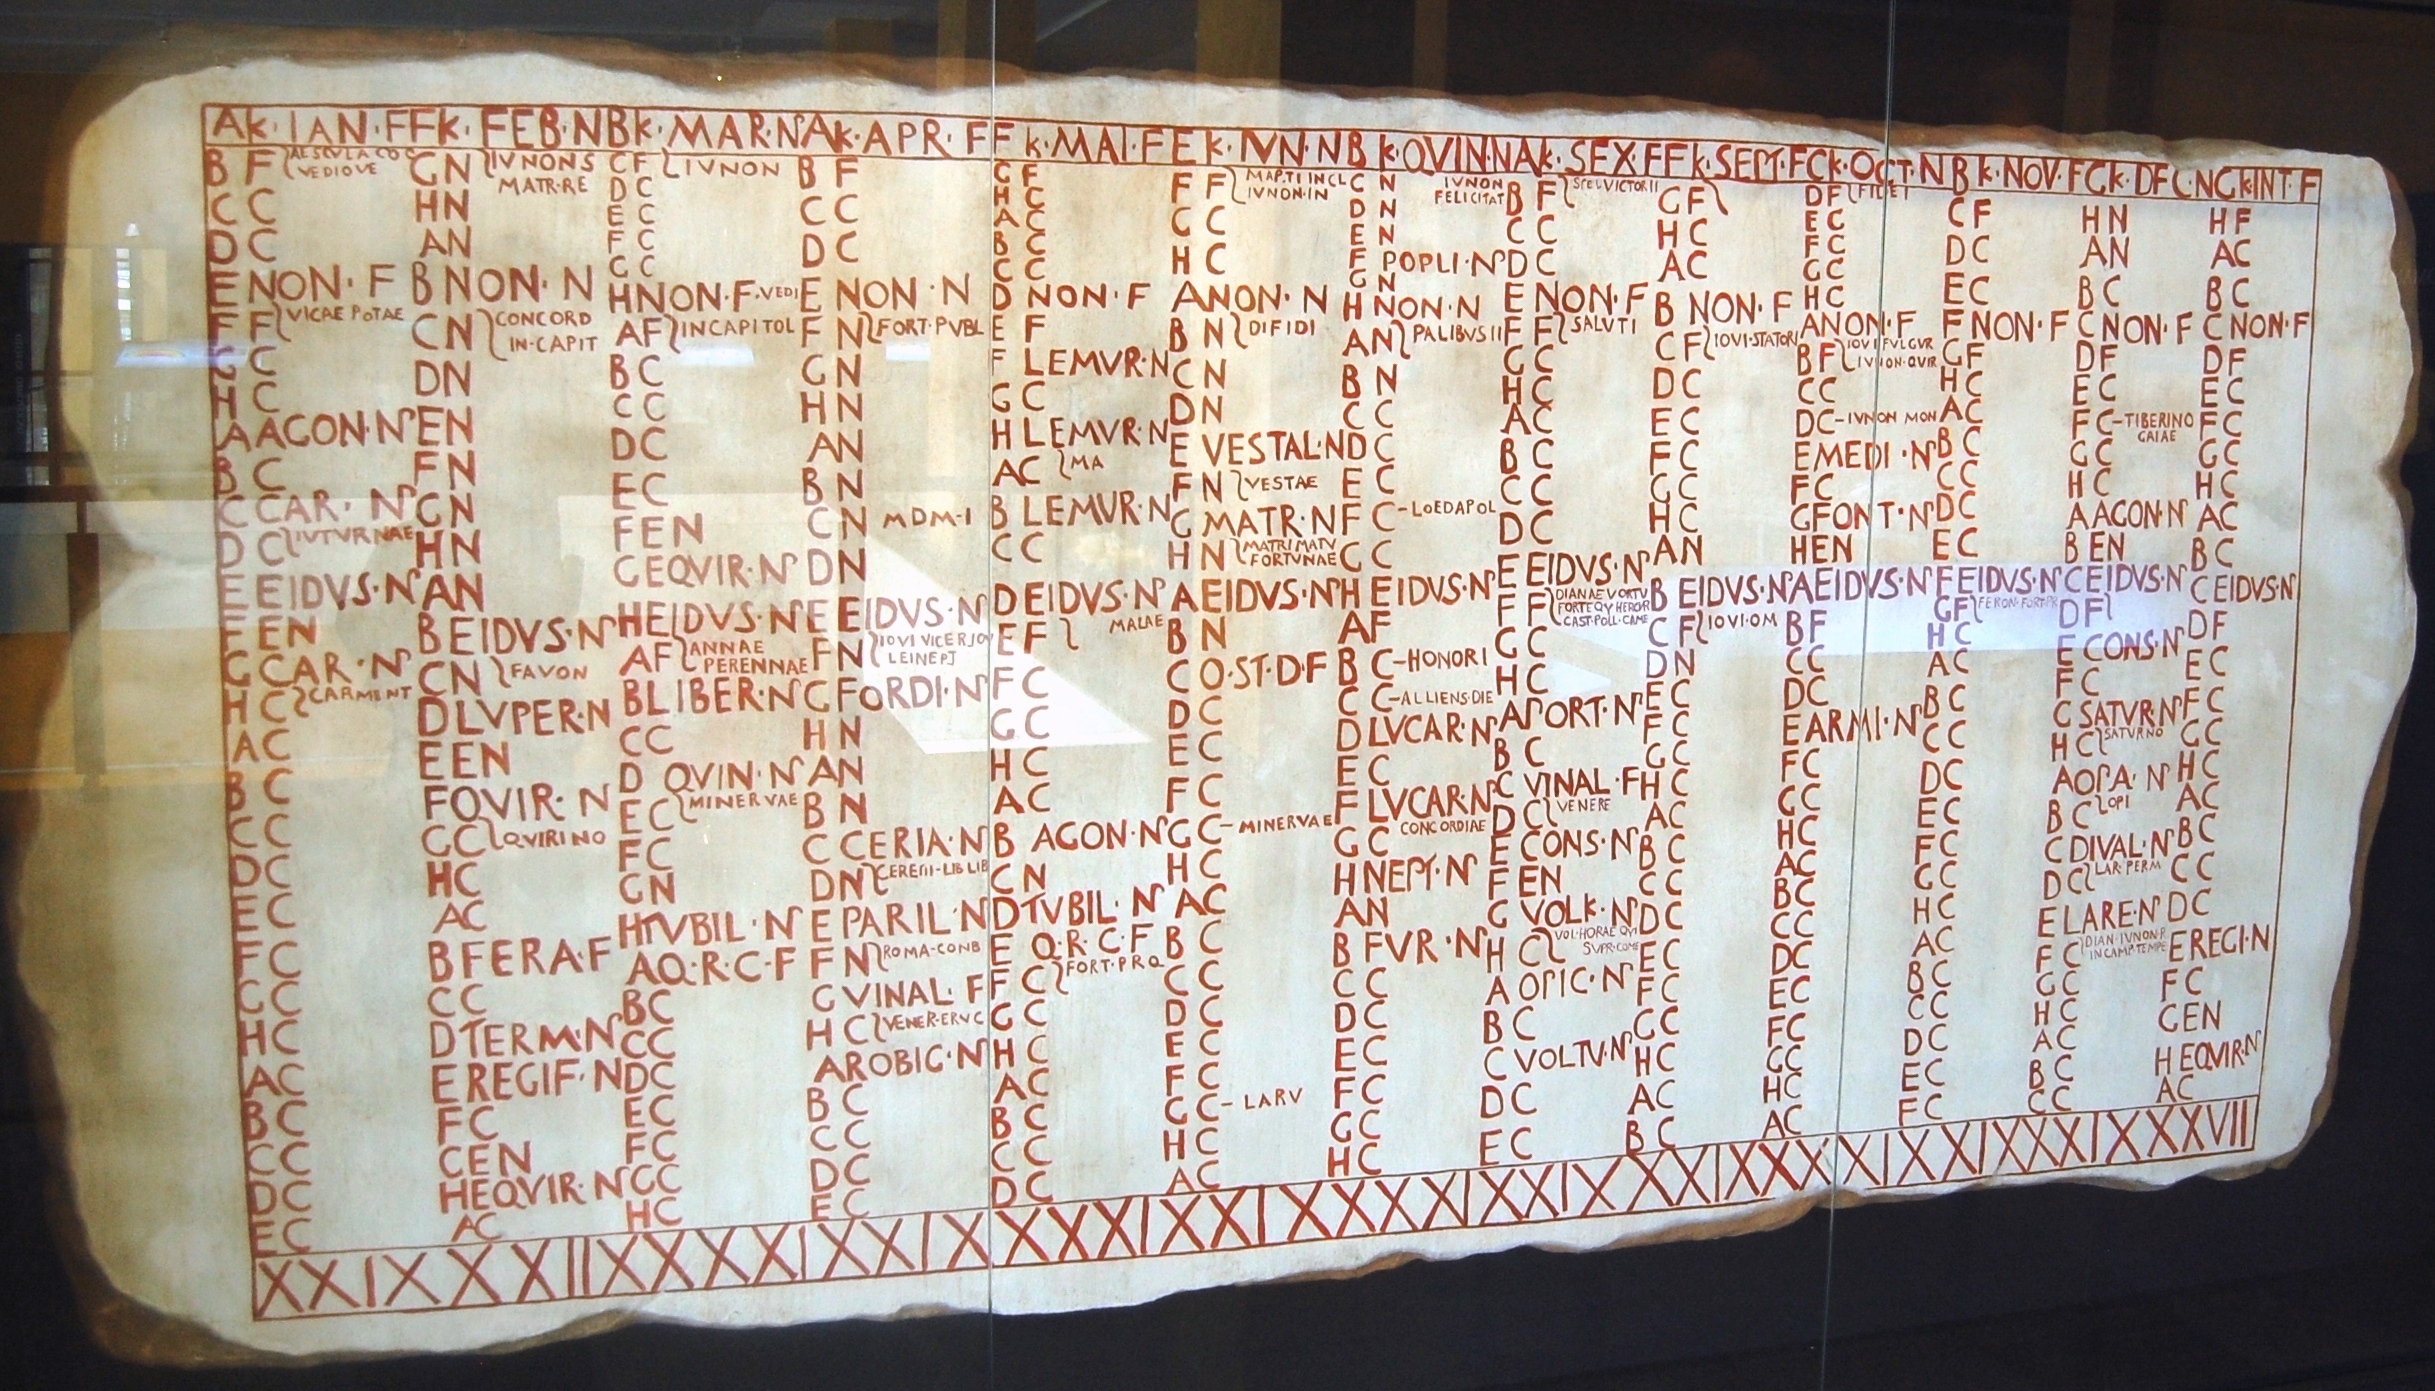 Ak·IAN·F Fk·FEB·N Bk·MAR·N Ak·APR·F Fk·MAI·F Ek·IVN·N Bk·QVIN·N Ak·SEX·F Fk·SEPT·F Ck·OCT·N Bk·NOV·F Gk·DEC·N Gk·INT·F
B F
VEDIOVE
C C
D C
E NON·F
F F VICAE POTAE
G C
H C
A AGON·N
B C
C CAR·N
D C IVTVRNAE
E EIDVS·N
F EN
G CAR·N
H C CARMENT
A C
B C
C C
D C
E C
F C
G C
H C
A C
B C
C C
D C
E C
G N IVNONS
MATR·RE
H N
A N
B NON·N
C N CONCORD
IN·CAPIT
D N
E N
F N
G N
H N
A N
B EIDVS·N
C N FAVON
D LVPER·N
E EN
F QVIR·N
G C QVIRINO
H C
A C
B FERA·F
C C
D TERM·N
E REGIF·N
F C
G EN
H EQVIR·N
A C
C F IVNON
D C
E C
F C
G C
H NON·F·VEDI
A F IN CAPITOL
B C
C C
D C
E C
F EN
G EQVIR·N
H EIDVS·N
A F ANNAE
PERENNAE
B LIBER·N
C C
D QVIN·N
E C MINERVAE
F C
G N
H TVBIL·N
A Q·R·C·F
B C
C C
D C
E C
F C
G C
H C
B F
C C
D C
E NON·N
F N FORT·PVBL
G N
H N
A N
B N
C N MDM·I
D N
E EIDVS·N
F N IOVI VICE
LEINEPJ
G FORDI·N
H N
A N
B N
C CERIA·N
D N LIB LIB
E PARIL·N
F N ROMA·CONB
G VINAL·F
H C VENER·ERVC
A ROBIG·N
B C
C C
D C
E C
G F
H C
A C
B C
C C
D NON·F
E F
F LEMVR·N
G C
H LEMVR·N
A C MA
B LEMVR·N
C C
D EIDVS·N
E F MALAE
F C
G C
H C
A C
B AGON·N
C N
D TVBIL·N
E Q·R·C·F
F C FORT·PRQ
G C
H C
A C
B C
C C
D C
F F
IVNON·IN
G C
H C
A NON·N
B N DIFIDI
C N
D N
E VESTAL·N
F N VESTAE
G MATR·N
H N MATRI MATV
FORTVNAE
A EIDVS·N
B N
C Q·ST·D·F
D C
E C
F C
G C–MINERVAE
H C
A C
B C
C C
D C
E C
F C
G C–LARV
H C
A C
C N IVNON
FELICITAT
D N
E N
F POPLI·N
G N
H NON·N
A N PALIBVSII
B N
C C
D C
E C
F C–LOEDAPOL
G C
H EIDVS·N
A F
B C–HONORI
C C–ALLIENS·DIE
D LVCAR·N
E C
F LVCAR·N
G C CONCORDIAE
H NEPT·N
A N
B FVR·N
C C
D C
E C
F C
G C
H C
B F
C C
D C
E NON·F
F F SALVTI
G C
H C
A C
B C
C C
D C
E EIDVS·N
F F DIANAE VORTV
FORTE QV HEROR
CAST·POLL·CAME
G C
H C
A PORT·N
B C
C VINAL·F
D C VENERE
E CONS·N
F EN
G VOLK·N
H C VOL·HORAE QVI
SVPR·COME
A OPIC·N
B C
C VOLTV·N
D C
E C
G F
H C
A C
B NON·F
C F IOVI·STATORI
D C
E C
F C
G C
H C
A N
B EIDVS·N
C F IOVI·OM
D N
E C
F C
G C
H C
A C
B C
C C
D C
E C
F C
G C
H C
A C
B C
D F
E C
F C
G C
H C
A NON·F
B F IOVI FVLGVR
IVNON·QVIR
C C
D C–IVNON MON
E MEDI·N
F C
G FONT·N
H EN
A EIDVS·N
B F
C C
D C
E ARMI·N
F C
G C
H C
A C
B C
C C
D C
E C
F C
G C
H C
A C
C F
D C
E C
F NON·F
G F
H C
A C
B C
C C
D C
E C
F EIDVS·N
G F FERON·FORT·PR
H C
A C
B C
C C
D C
E C
F C
G C
H C
A C
B C
C C
D C
E C
F C
H N
A N
B C
C NON·F
D F
E C
F C–TIBERINO
GAIAE
G C
H C
A AGON·N
B EN
C EIDVS·N
D F
E CONS·N
F C
G SATVR·N
H C SATVRNO
A OPA·N
B C OPI
C DIVAL·N
D C LAR·PERM
E LARE·N
F C DIAN·IVNON·R
IN CAMP·TEMPE
G C
H C
A C
B C
C C
H F
A C
B C
C NON·F
D F
E C
F C
G C
H C
A C
B C
C EIDVS·N
D F
E C
F C
G C
H C
A C
B C
C C
D C
E REGI·N
F C
G EN
H EQVIR·N
A C
XXIX XXIIX XXXI XXIX XXXI XXIX XXXI XXIX XXIX XXXI XXIX XXIX XXVII